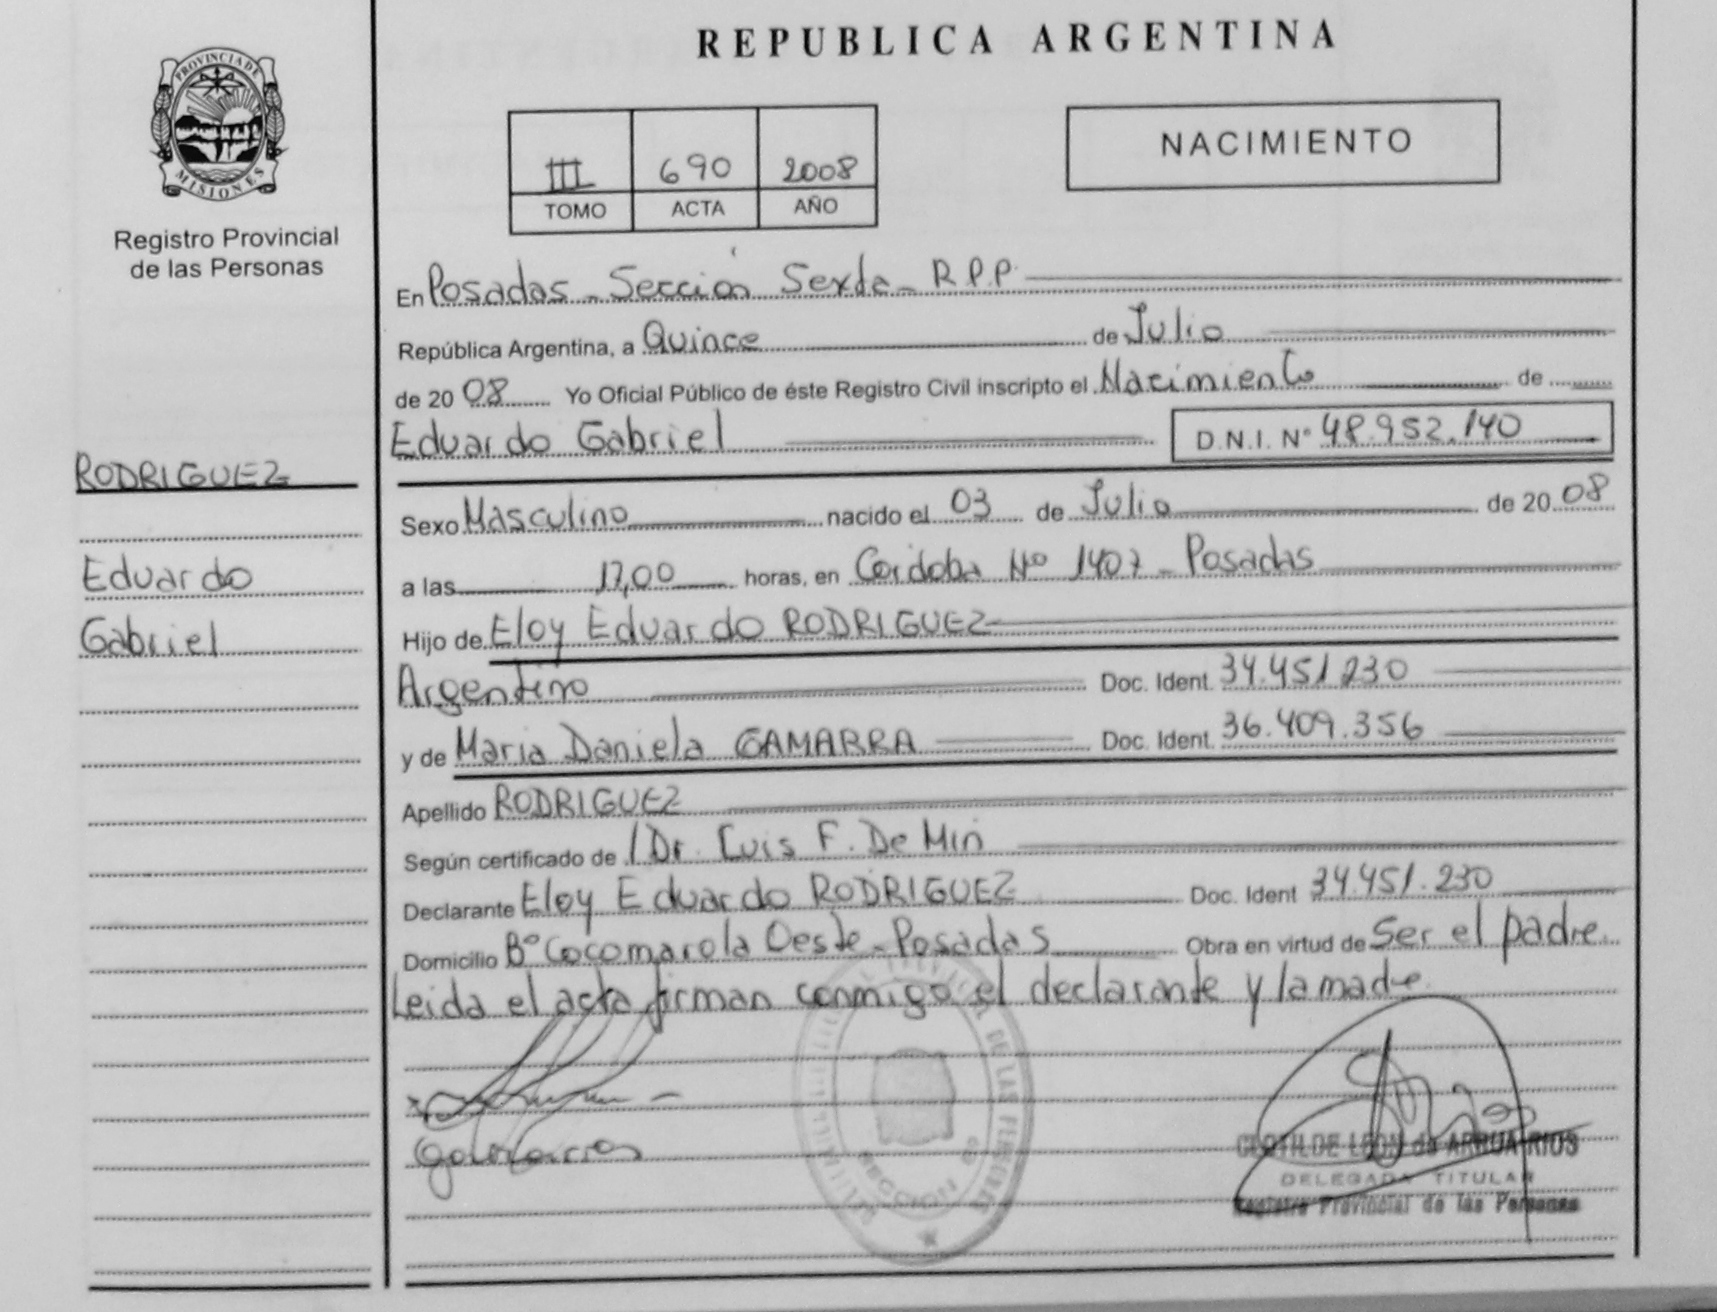 PROVINCIA DE
MISIONES
Registro Provincial
de las Personas
RODRIGUEZ
Eduardo
Gabriel
REPUBLICA ARGENTINA
III 690 2008
TOMO ACTA AÑO
NACIMIENTO
En Posadas - Sección Sexta - R.P.P.
República Argentina, a Quince de Julio
de 2008 Yo Oficial Público de éste Registro Civil inscripto el Nacimiento de
Eduardo Gabriel D.N.I. N° 48.952.140
Sexo Masculino nacido el 03 de Julio de 2008
a las 17,00 horas, en Córdoba Nº 1407 - Posadas
Hijo de Eloy Eduardo RODRIGUEZ
Argentino Doc. Ident. 34.451.230
y de Maria Daniela GAMARRA Doc. Ident. 36.409.356
Apellido RODRIGUEZ
Según certificado de / Dr. Luis F. De Min
Declarante Eloy Eduardo RODRIGUEZ Doc. Ident 34.451.230
Domicilio Bº Cocomarola Oeste - Posadas Obra en virtud de Ser el padre.
Leida el acta firman conmigo el declarante y la madre.
DE LAS PERSONAS
SECCION
CLOTILDE LEON de ARRUA RIOS
DELEGADA TITULAR
Registro Provincial de las Personas